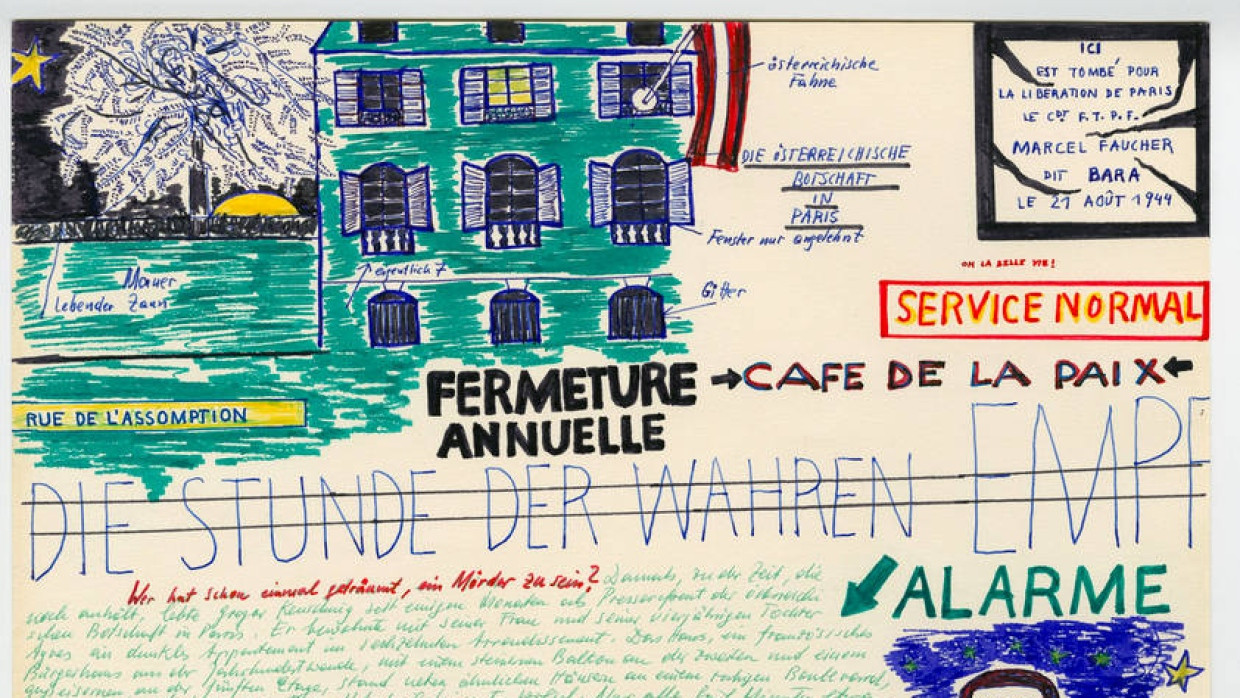 österreichische
Fahne
DIE ÖSTERREICHISCHE
BOTSCHAFT
IN
PARIS
ICI
EST TOMBÉ POUR
LA LIBÉRATION DE PARIS
LE CDT F.T.P.F.
MARCEL FAUCHER
DIT BARA
LE 21 AOÛT 1944
Fenster nur angelehnt
eigentlich 7
Mauer
Lebender Zaun
Gitter
OH LA BELLE VIE!
SERVICE NORMAL
CAFE DE LA PAIX
FERMETURE
ANNUELLE
RUE DE L'ASSOMPTION
DIE STUNDE DER WAHREN EMPF
ALARME
Wer hat schon einmal geträumt, ein Mörder zu sein? Damals, zu der Zeit, die
noch anhält, lebte Gregor Keuschnig seit einigen Monaten als Pressereferent der österreichi-
schen Botschaft in Paris. Er bewohnte mit seiner Frau und seiner vierjährigen Tochter
Agnes ein dunkles Appartement im sechzehnten Arrondissement. Das Haus, ein französisches
Bürgerhaus aus der Jahrhundertwende, mit einem steinernen Balkon an der zweiten und einem
gusseisernen an der fünften Etage, stand neben ähnlichen Häusern an einem ruhigen Boulevard,